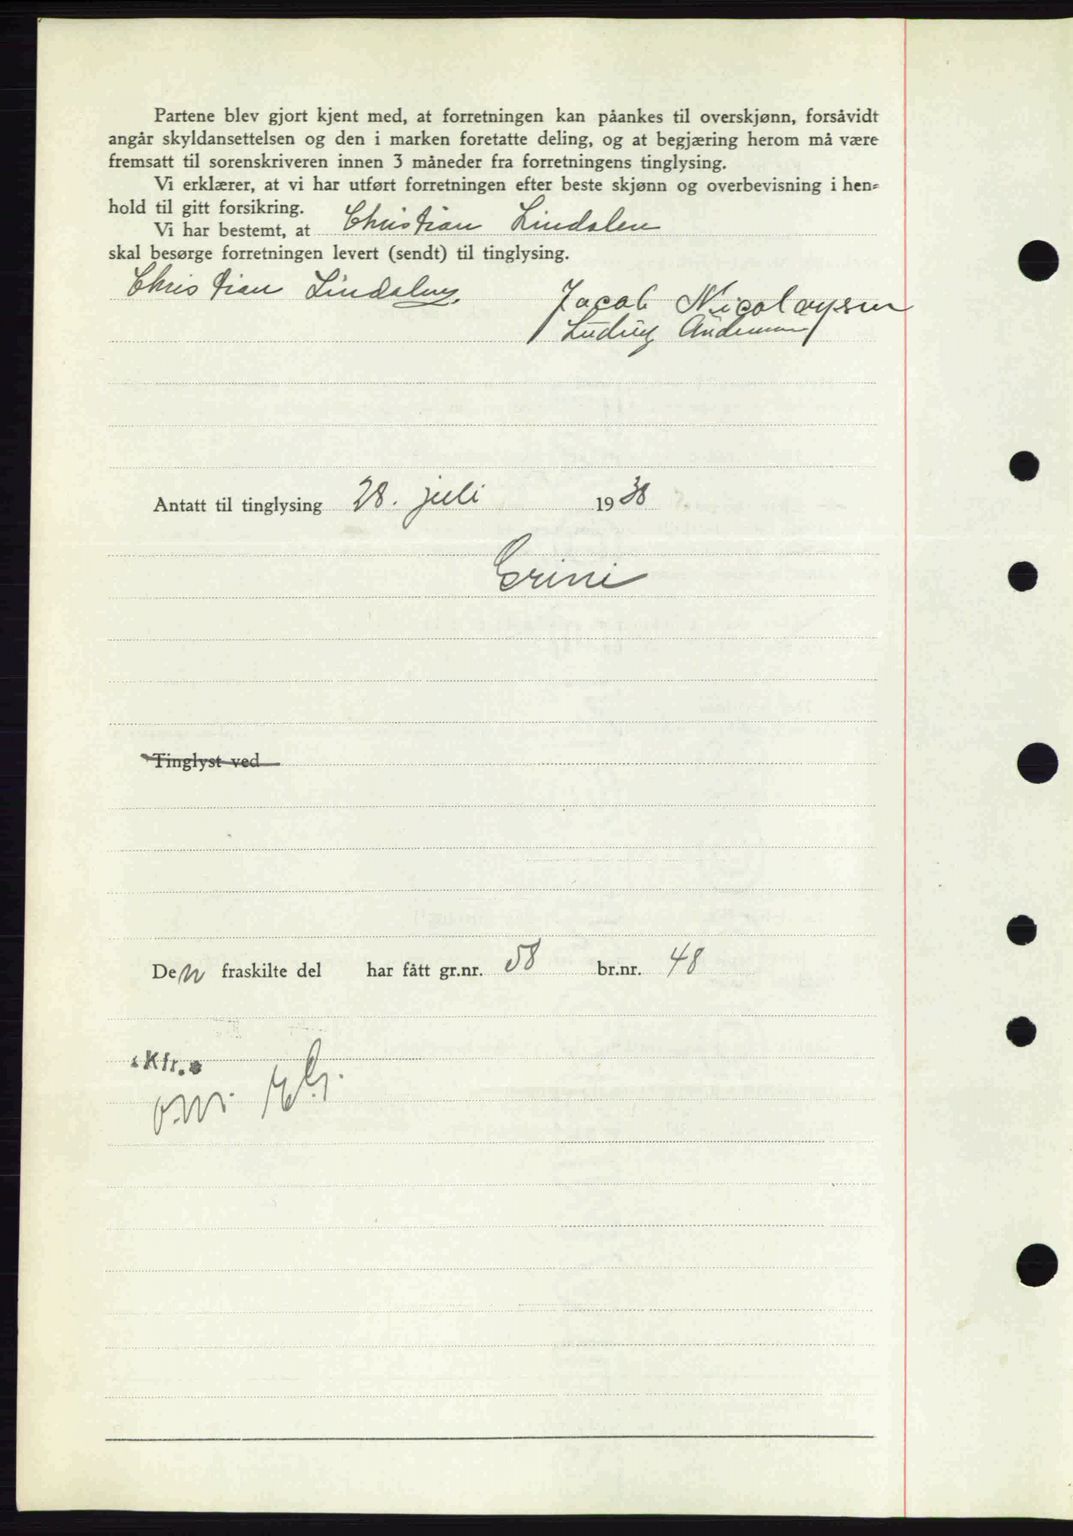 Partene blev gjort kjent med, at forretningen kan påankes til overskjønn, forsåvidt
angår skyldansettelsen og den i marken foretatte deling, og at begjæring herom må være
fremsatt til sorenskriveren innen 3 måneder fra forretningens tinglysing.
Vi erklærer, at vi har utført forretningen efter beste skjønn og overbevisning i hen-
hold til gitt forsikring.
Vi har bestemt, at Christian Lindalen
skal besørge forretningen levert (sendt) til tinglysing.
Christian Lindalen
Jacob Nicolaysen
Ludvig Andersen
Antatt til tinglysing 28. juli 1938
Grini
Tinglyst ved
Den fraskilte del har fått gr.nr. 58 br.nr. 48
Kfr.